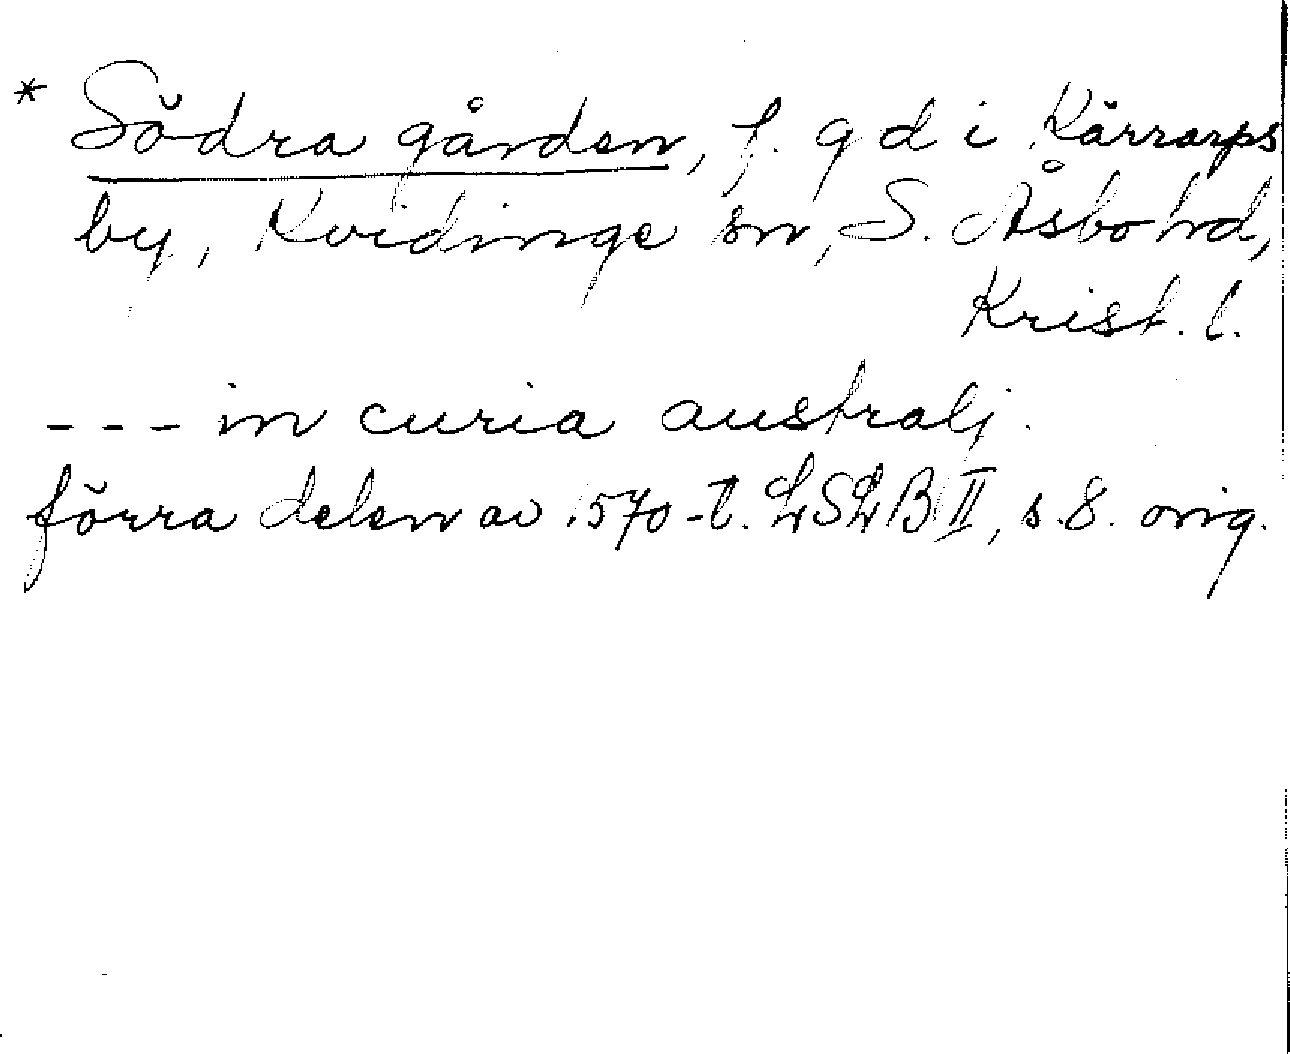 * Södra gården, f. gd i Kärrarps
by, Kvidinge sn, S. Åsbo hd,
Krist. l.
--- in curia australj.
förra delen av 1570-t. LSLB II, s. 8. orig.